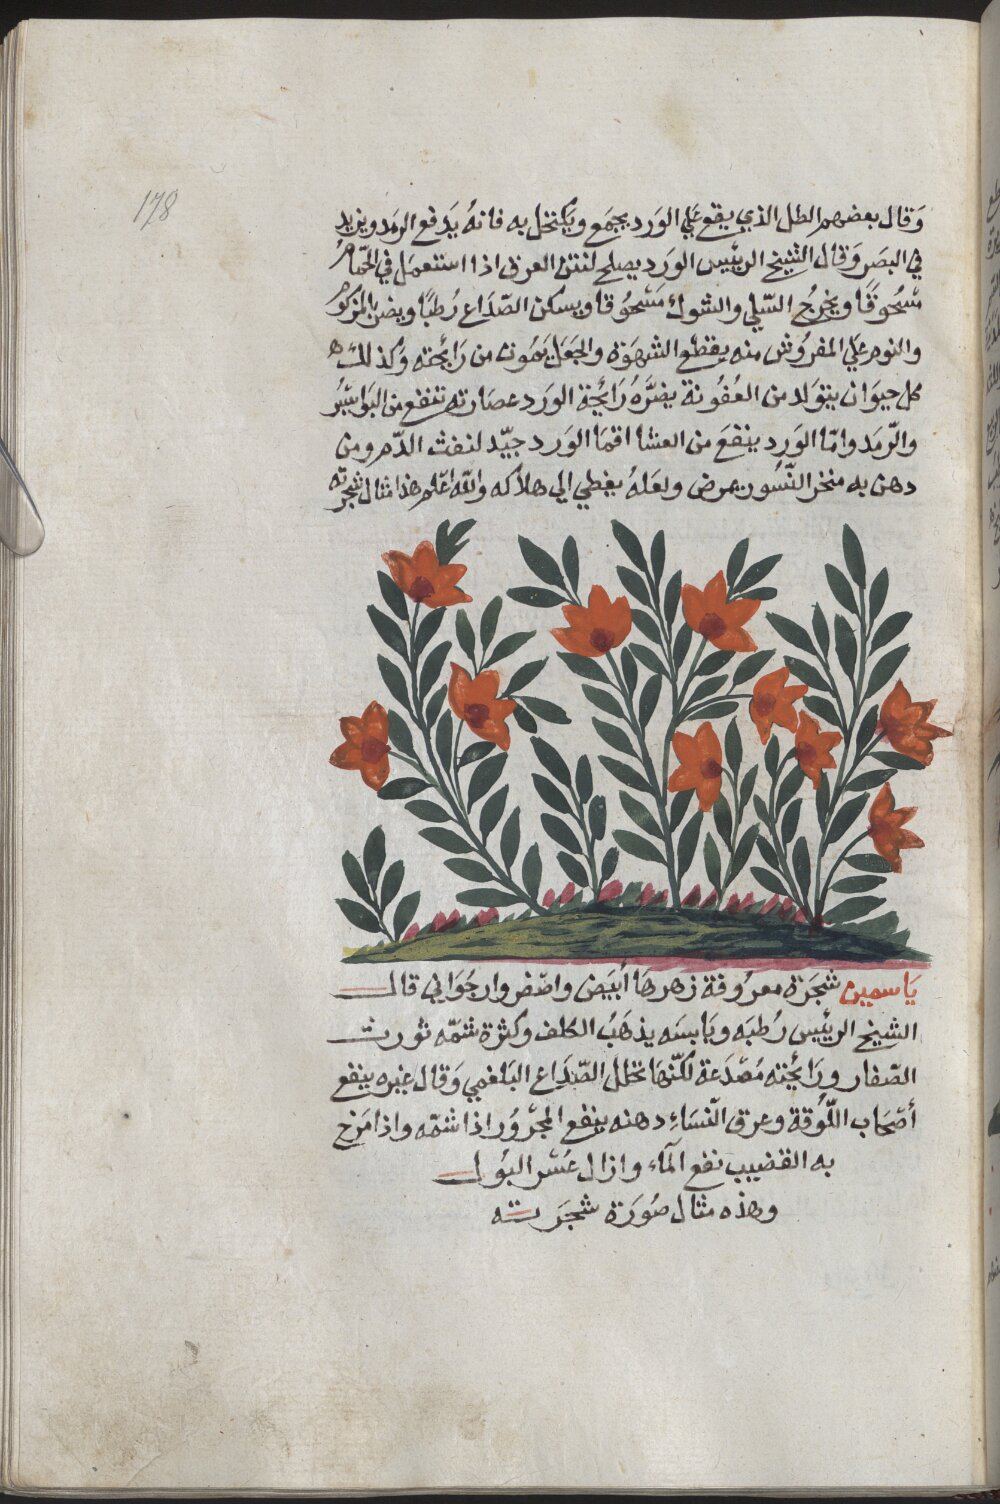 178
وَقال بعضهم الطل الذي يقع علي الوَرد يجمَع وَيكتحل به فانهُ يَدفع الرمَد ويزيد
في البصَر وَقال الشيخ الرئيس الورَد يصلح لنتن العرق اذا استعمَل في الحَمّام
مَسْحُوقًا ويخرجُ السّلي والشوك مَسْحُوقا ويسكن الصّدَاع رُطبًا ويضر المزكوم
والنوم علي المفرُوش منه يقطع الشهوَة والجَعَل يَمُوت من رَايحته وَكذلك
كل حيوَان يتوَلد من العفُونة يضرَّهُ رَائحة الوَرد عصَارته تنفع من البَوَاسيُر
والرّمَد وامّا الوَرد ينفعَ من العشا اقمَا الوَرد جيّد لنفث الدّم ومن
دهن به منخر السّنّور يمرض ولعَلهُ يفضي الي هلاكه واللّه اعْلم هذا مثال شجرته
يَاسمين شجَرَة معرُوفة زهرهَا أبيَض واصْفر وارجُوَاني قال
الشيخ الريئيس رُطبَه ويَابسَه يذهَبُ الكلف وكثرة شمّه تورث
الصّفار ورَائحته مُصْدَعة لكنّهَا تحلل الصّدَاع البَلغمي وَقال غيره ينفع
أصْحَاب اللّقوة وعرق النّسَاءِ دهنه ينفع المجرُور اذا شمّه واذا مَزج
به القضيب نفع المآء وازال عُسْر البُول
وهذه مثال صُورَة شجَرَته